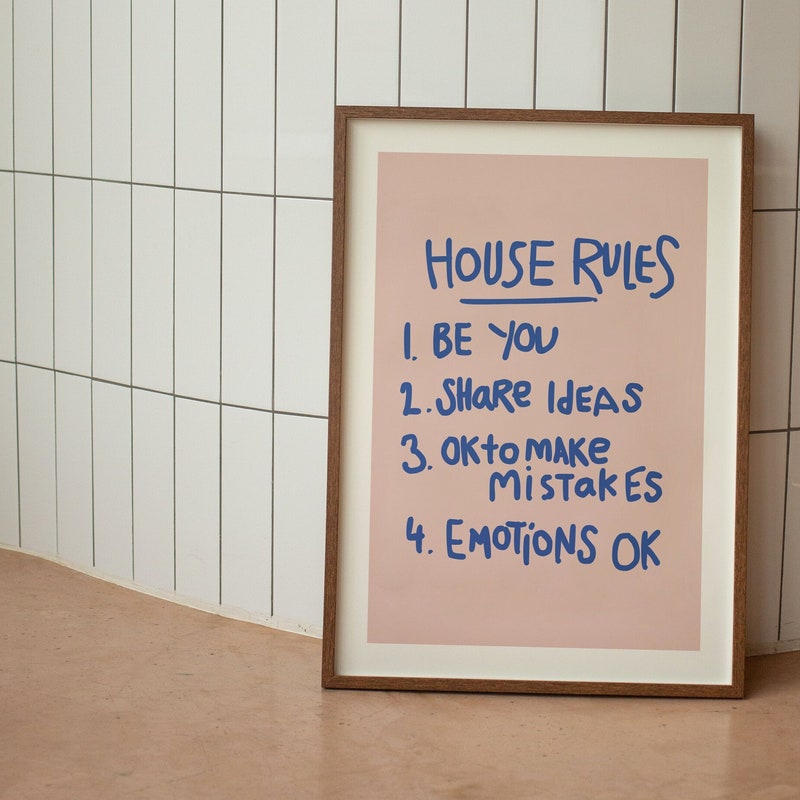 HOUSE RULES
1. BE YOU
2. SHaRe IdEAS
3. OKtoMAKE
MiStakES
4. EMOTiONS OK